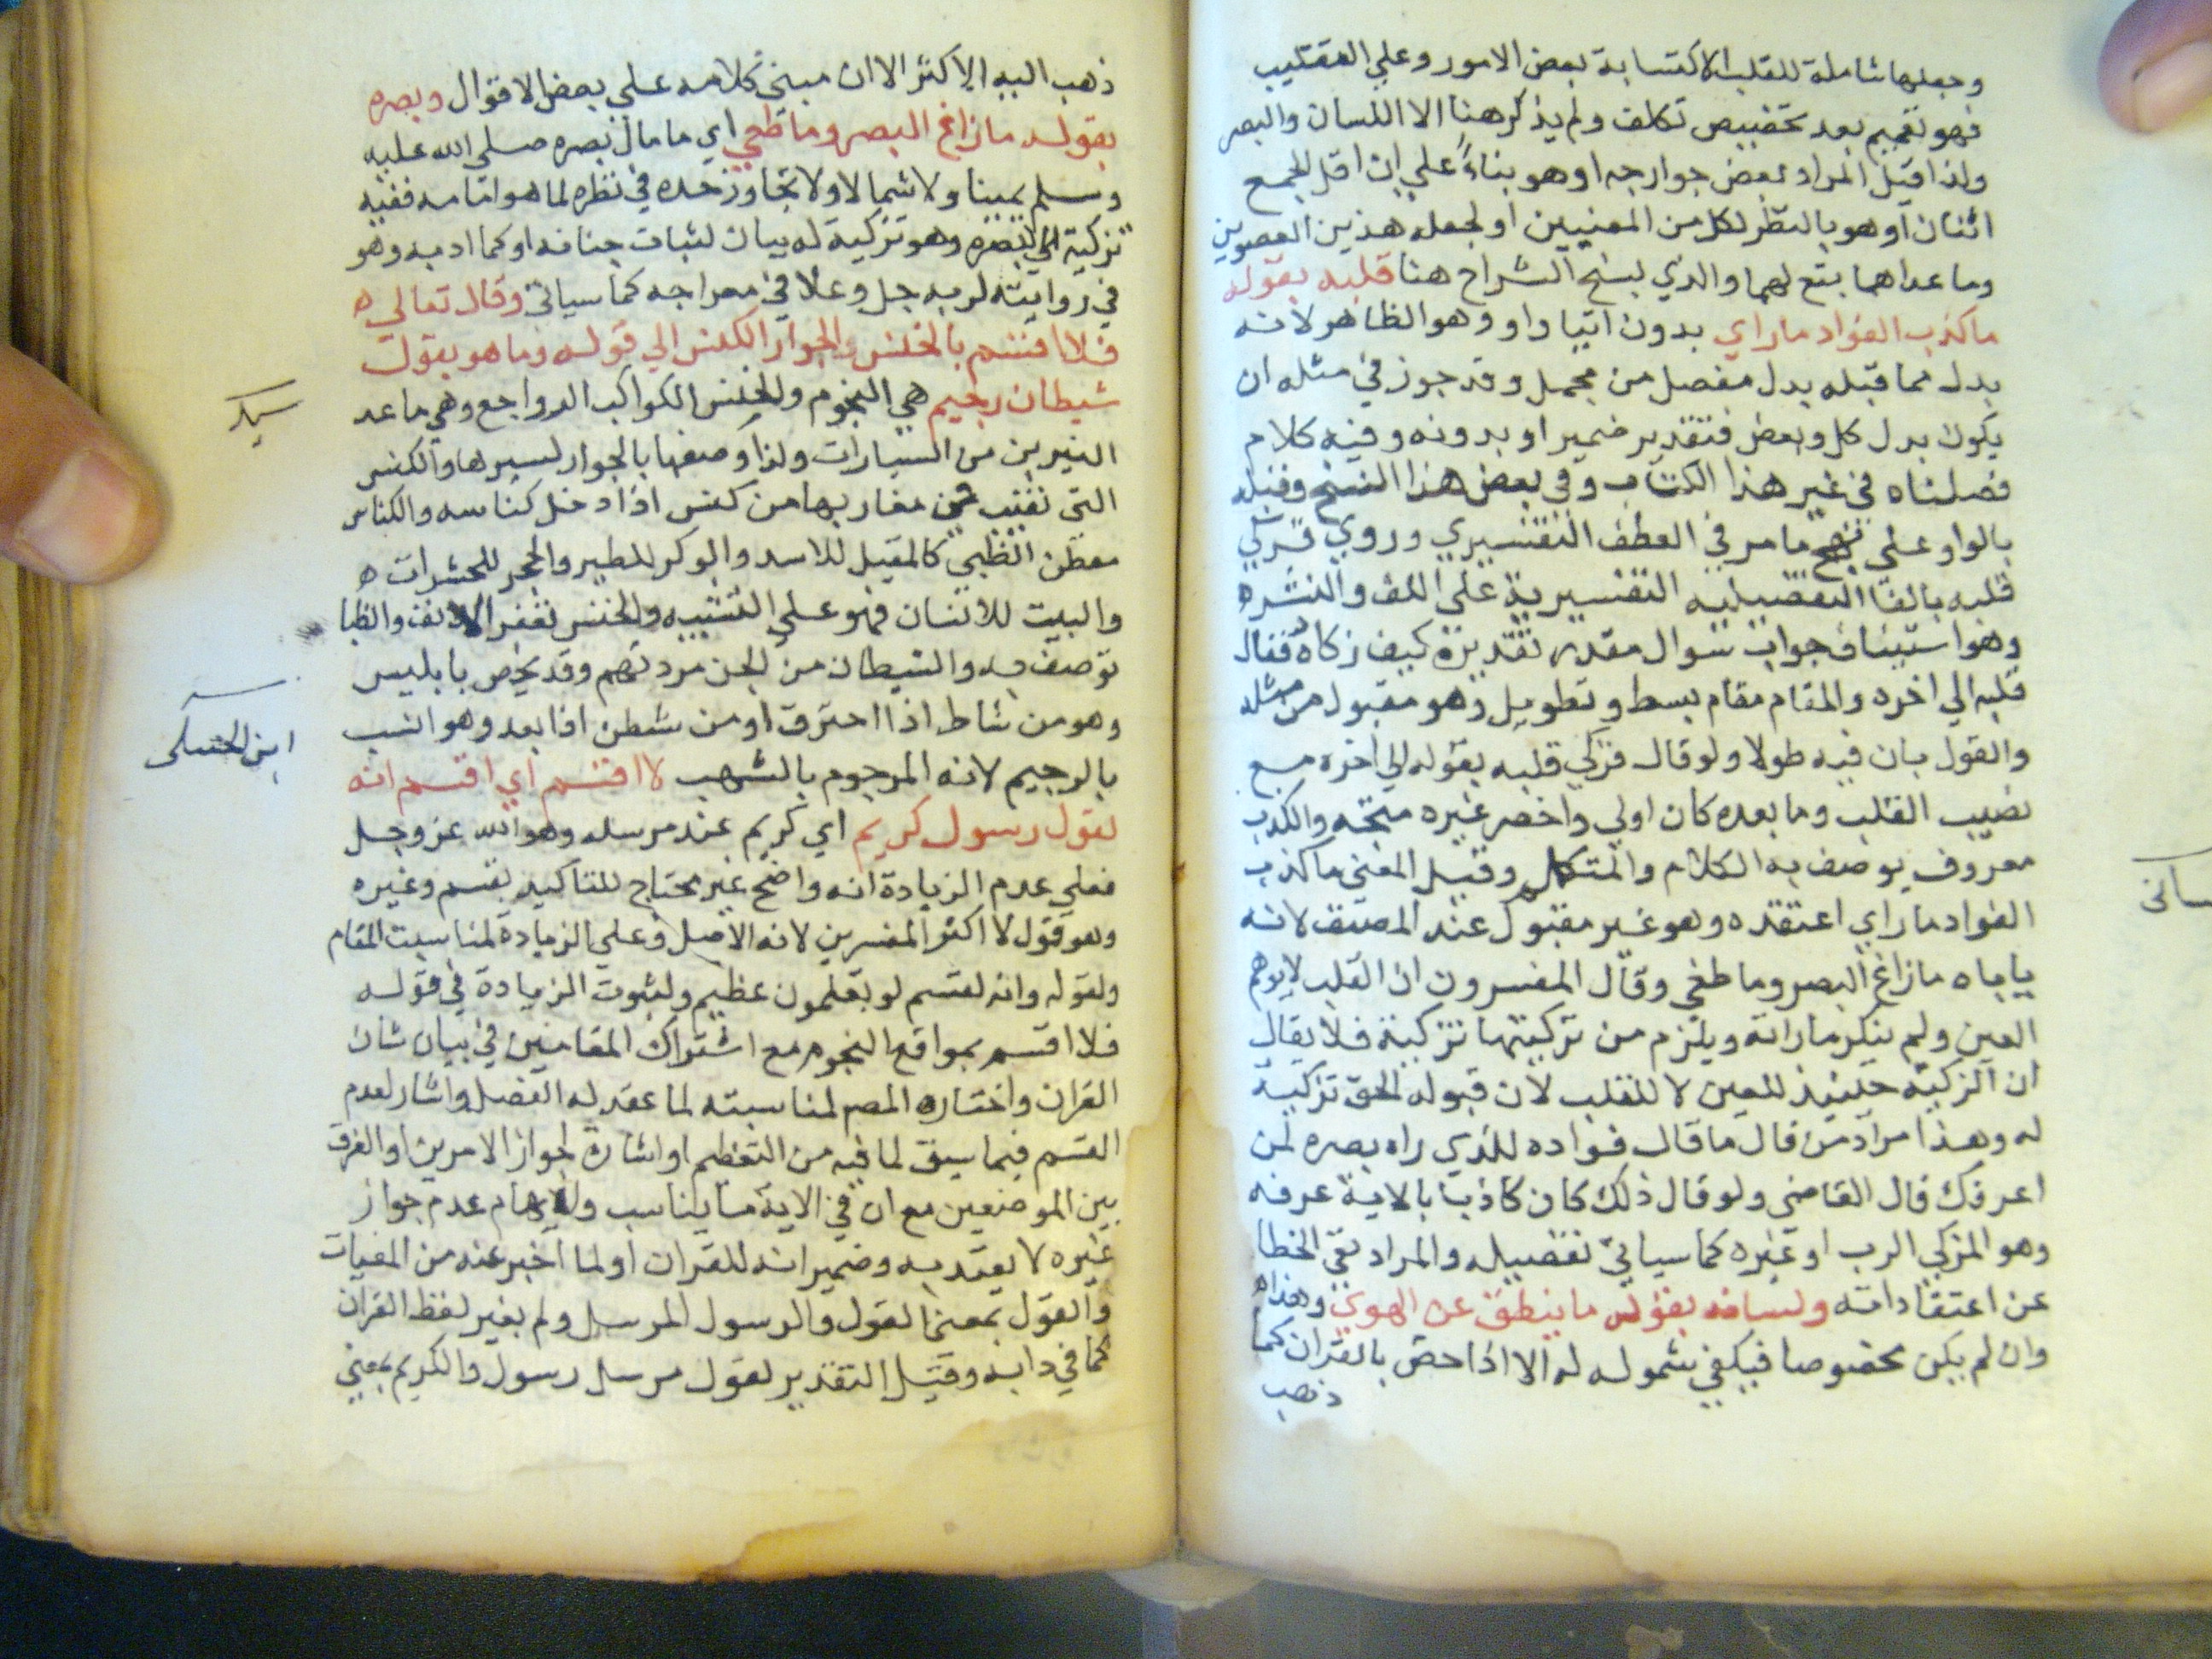 وجعلها شاملة للقلب الاكتسابة بعض الامور وعلي العقليب
فهو تعميم بعد تخصيص تكلف ولم يذكر هنا الا اللسان والبصر
ولذا قيل المراد بعض جوارحه او هو بناءً علي ان اقل الجمع
اثنان او هو بالنظر لكل من المعنيين او لجعله هذين العضوين
وما عداهما بتع لهما والذي بنسخ الشراح هنا قلبه بقوله
ماكذب الفواد ماراي بدون اتيا واو وهو الظاهر لانه
بدل مما قبله بدل مفصل من مجمل وقد جوز في مثله ان
يكون بدل كل وبعض فتقدير ضمير او بدونه وفيه كلام
فصلناه في غير هذا الكتاب وفي بعض هذا النسخ وقلبه
بالواو علي نهج مامر في العطف التفسيري وروي فزكي
قلبه بالفا التفصيليه التفسيرية علي اللف والنشره
وهو استيناف جواب سوال مقدر تقديره كيف زكاه فقال
قلبه الي اخره والمقام مقام بسط وتطويل وهو مقبول من مثله
والقول بان فيه طولا ولو قال فزكي قلبه بقوله الي اخره مع
نصيب القلب وما بعده كان اولي واخصر غيره متجه والكذب
معروف يوصف به الكلام والمتكلم وقيل المعني ماكذب
الفواد ماراي اعتقده وهو غير مقبول عند المصنف لانه
ياباه مازاغ البصر وما طغي وقال المفسرون ان القلب لا يوهم
العين ولم ينكر ماراته ويلزم من تزكيتها تزكيته فلا يقال
ان التزكيه حينيذ للعين لا للقلب لان قبوله للحق تزكية
له وهذا مراد من قال ما قال فواده للذي راه بصره لمن
اعرفك قال القاضي ولو قال ذلك كان كاذبا بالاية عرفه
وهو المزكي الرب او غيره كما سياتي تفصيله والمراد نفي الخطا
عن اعتقاداته ولسانه بقوله ماينطق عن الهوي وهذاه
وان لم يكن مخصوصا فيكفي شموله له الا اذا خص بالقران كما
ذهب
ذهب اليه الاكثر الا ان مبني كلامه علي بعض الاقوال وبصره
بقوله مازاغ البصر وماطغي اي مامال بصره صلي الله عليه
وسلم يمينا ولا شمالا ولا تجاوز حده في نظره لما هو امامه ففيه
تزكية الي بصره وهو تزكية له بيان لثبات جنانه او كما ادبه وهو
في روايته لربه جل وعلا في معراجه كما سياتي وقال تعالي ه
فلا اقسم بالخنس والجوار الكنس الي قوله وما هو بقول
شيطان رجيم هي النجوم والخنس الكواكب الرواجع وهي ماعد
النيرين من السيارات ولذا وصفها بالجوار لسيرها والكنس
التي تغيب من مغاربها من كنس اذا دخل كناسه والكناس
معطن الظبي كالمقيل للاسد والوكر للطير والحجر للحشرات ه
والبيت للانسان فهو علي التشبيه والخنس نقعر الانف والظبا
توصف به والشيطان من الجن مردتهم وقد يخص بابليس
وهو من شاط اذا احترق او من شطن اذا بعد وهو انسب
بالرجيم لانه المرجوم بالشهب لا اقسم اي اقسم انه
لقول رسول كريم اي كريم عند مرسله وهو الله عز وجل
فعلي عدم الزيادة انه واضح غير محتاج للتاكيد بقسم وغيره
وهو قول لا اكثر المفسرين لانه الاصل وعلي الزيادة لمناسبت المقام
ولقوله وانه لقسم لو تعلمون عظيم ولثبوت الزيادة في قوله
فلا اقسم بمواقع النجوم مع اشتراك المقامين في بيان شان
القران واختاره المصر لمناسبته لما عقد له الفصل واشار لعدم
القسم فيما سبق لما فيه من التعظيم او اشارة لجواز الامرين او الفرق
بين الموضعين مع ان في الاية ما يناسب ولايهام عدم جواز
غيره لا يعتد به وضمير انه للقران او لما اخبر عنه من المغيبات
والقول بمعني القول والرسول المرسل ولم بغير لفظ القران
كما في دابه وقيل التقدير لقول مرسل رسول والكريم بمعني